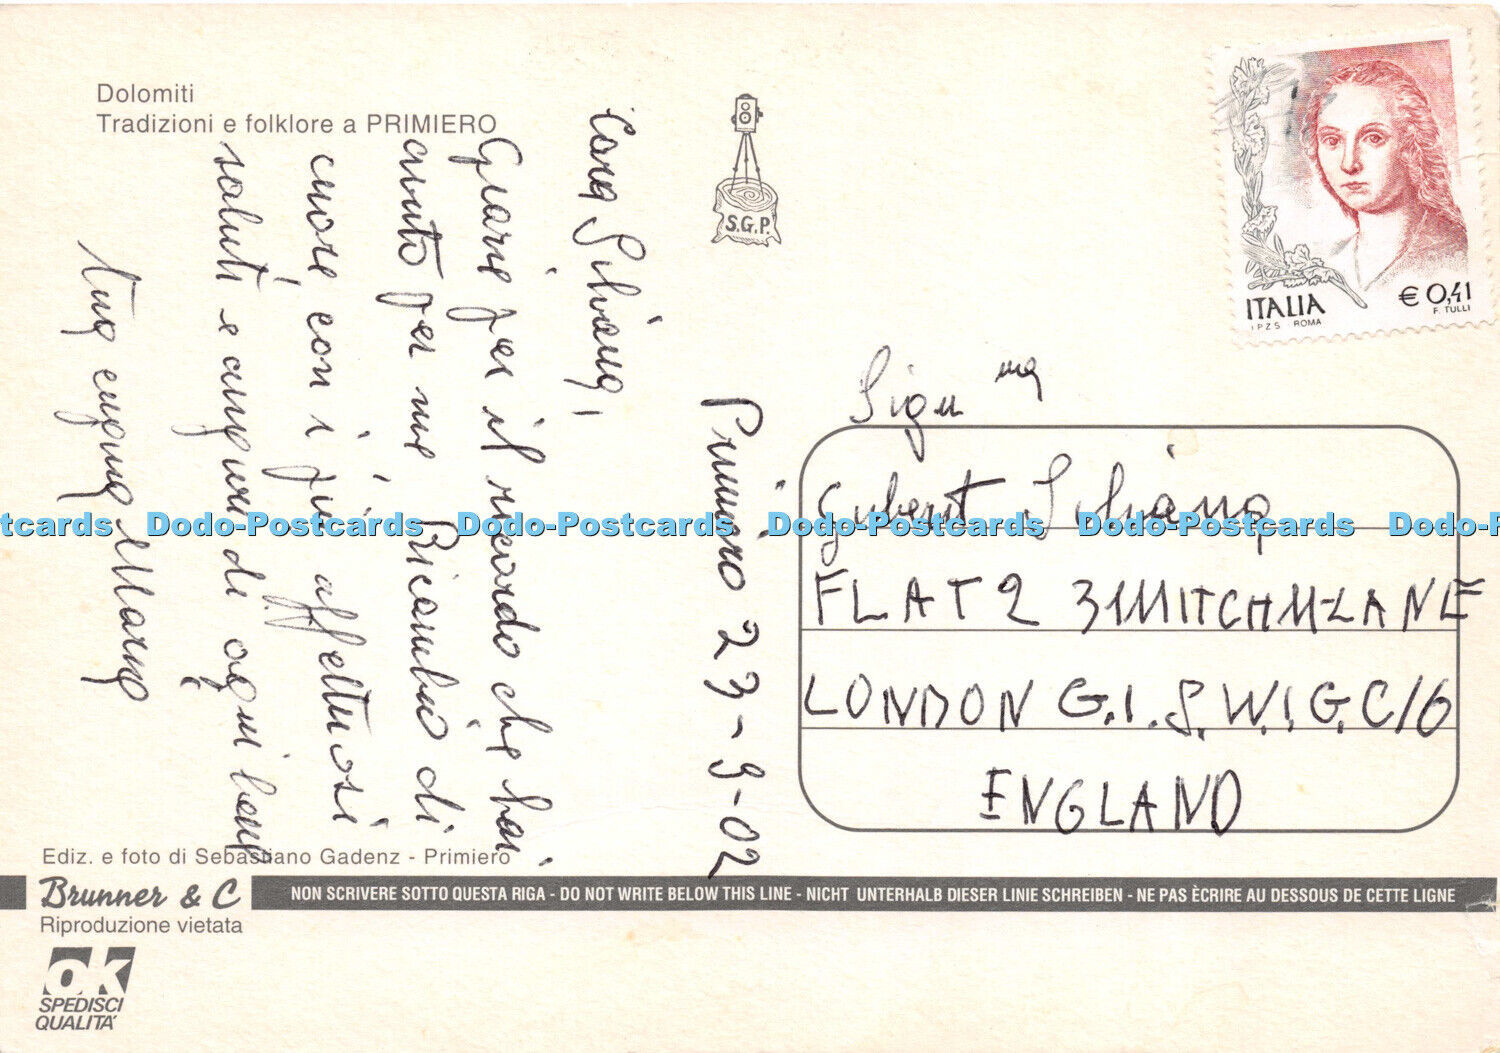 Dolomiti
Tradizioni e folklore a PRIMIERO
Cara Silvana,
Grazie per il ricordo che hai
avuto per me Ricambio di
cuore con i più affettuosi
saluti e auguri di ogni bene
tua cugina Maria
Primiero 23-9-02
S.G.P.
ITALIA
€ 0,41
I.P.Z.S. ROMA
F. TULLI
Sign
Silvana
FLAT 2 31
LANE
LONDON G.I. S.W.I G.C/6
ENGLAND
Dodo-Postcards Dodo-Postcards Dodo-Postcards Dodo-Postcards
Ediz. e foto di Sebastiano Gadenz - Primiero
Brunner & C
NON SCRIVERE SOTTO QUESTA RIGA - DO NOT WRITE BELOW THIS LINE - NICHT UNTERHALB DIESER LINIE SCHREIBEN - NE PAS ÈCRIRE AU DESSOUS DE CETTE LIGNE
Riproduzione vietata
OK
SPEDISCI
QUALITA'